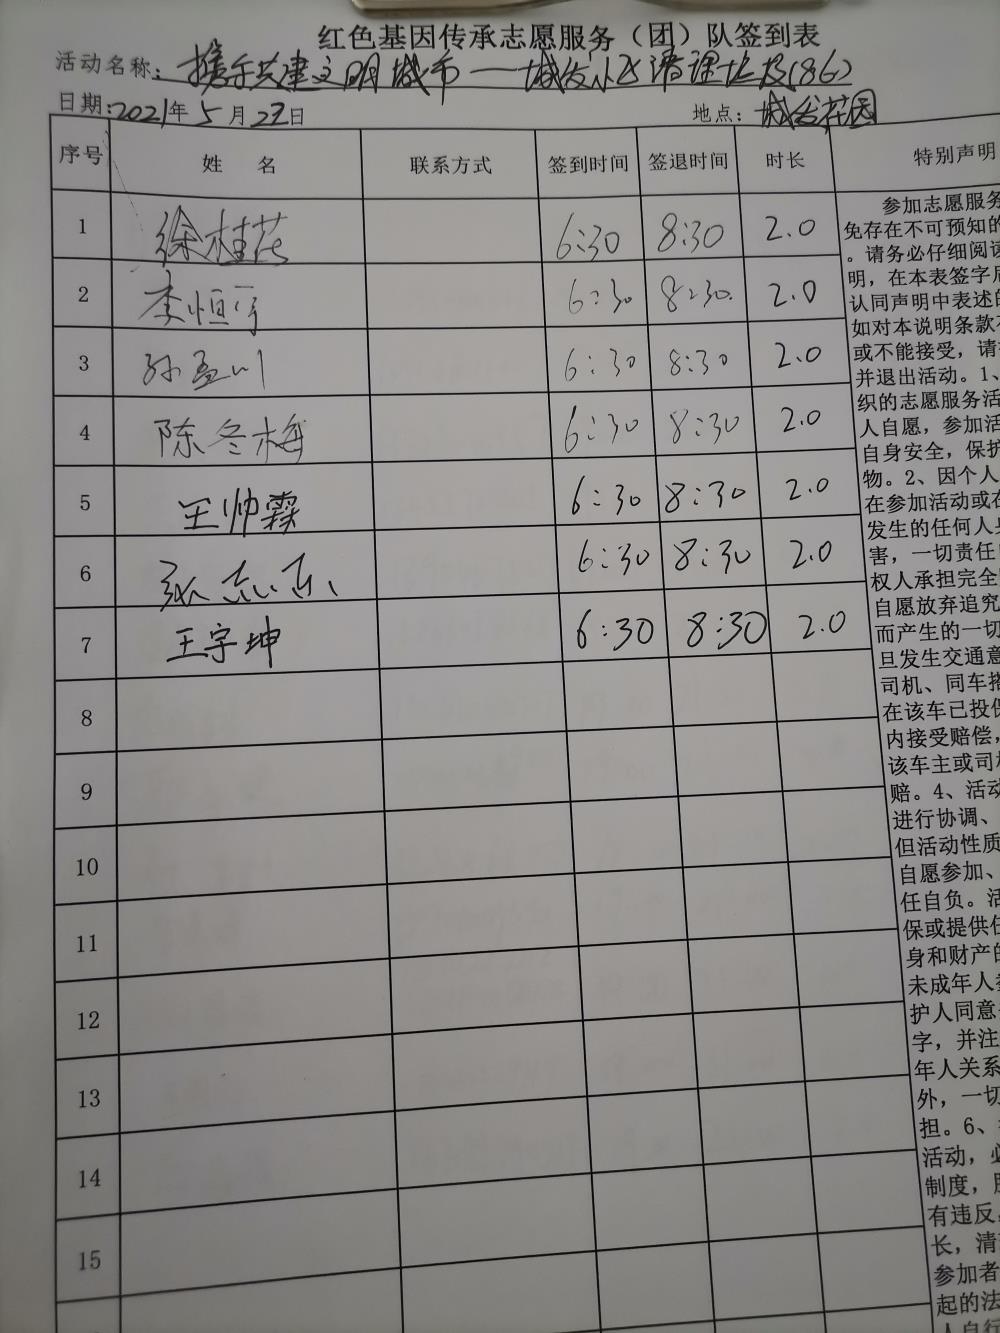 红色基因传承志愿服务（团）队签到表
活动名称：携手共建文明城市——城发小区清理垃圾(86)
日期：2021年5月22日 地点：城发花园
序号 姓 名 联系方式 签到时间 签退时间 时长 特别声明
1 徐桂 6:30 8:30 2.0
2 李恒 6:30 8:30 2.0
3 孙盈川 6:30 8:30 2.0
4 陈冬梅 6:30 8:30 2.0
5 王帅霖 6:30 8:30 2.0
6 张志 6:30 8:30 2.0
7 王宇坤 6:30 8:30 2.0
8
9
10
11
12
13
14
15
参加志愿服务
免存在不可预知的
。请务必仔细阅读
明，在本表签字后
认同声明中表述的
如对本说明条款不
或不能接受，请
并退出活动。1、
织的志愿服务活
人自愿，参加活
自身安全，保护
物。2、因个人
在参加活动或在
发生的任何人身
害，一切责任自
权人承担完全
自愿放弃追究
而产生的一切
旦发生交通意
司机、同车搭
在该车已投保
内接受赔偿，
该车主或司机
赔。4、活动
进行协调、
但活动性质
自愿参加、
任自负。活
保或提供任
身和财产的
未成年人参
护人同意
字，并注
年人关系
外，一切
担。6、
活动，必
制度，服
有违反，
长，清
参加者
起的法
人自行